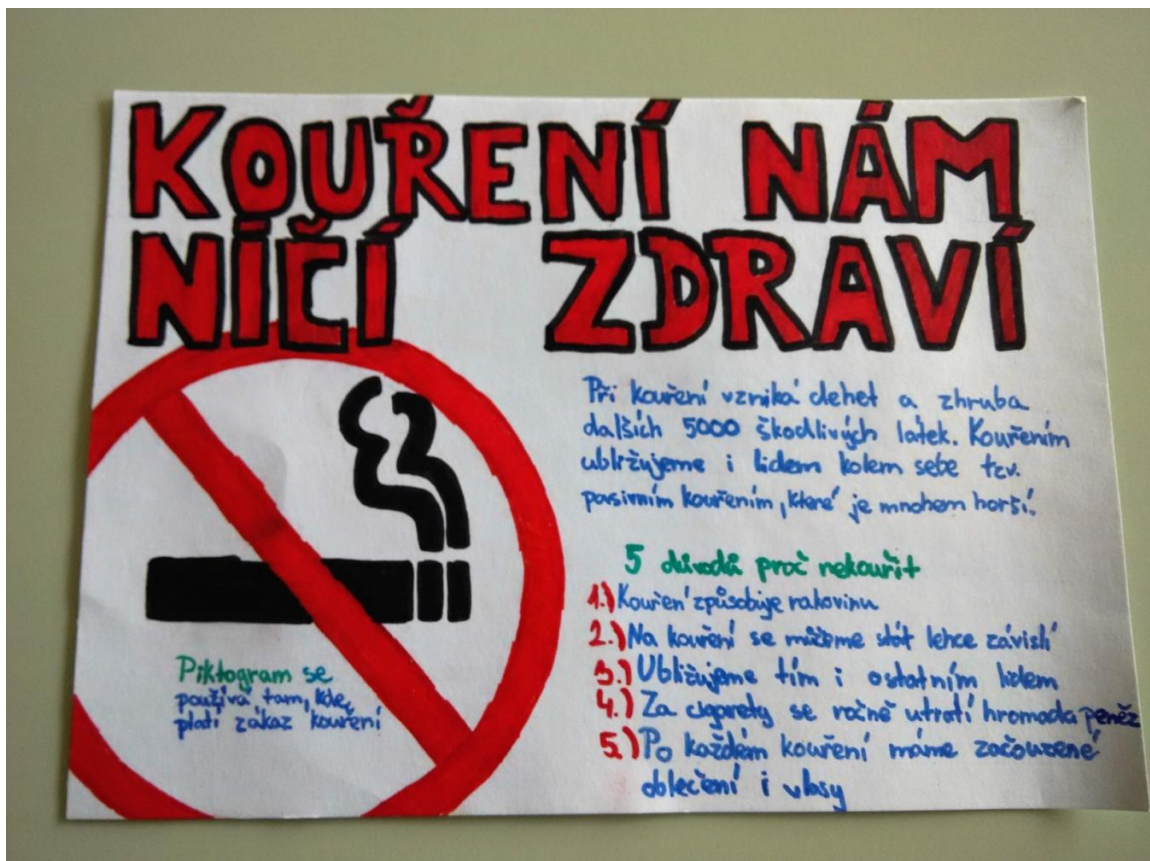 KOUŘENÍ NÁM
NIČÍ ZDRAVÍ
Při kouření vzniká dehet a zhruba
dalších 5000 škodlivých látek. Kouřením
ubližujeme i lidem kolem sebe tzv.
pasivním kouřením, které je mnohem horší.
5 důvodů proč nekouřit
1.) Kouřen' způsobuje rakovinu
2.) Na kouření se můžeme stát lehce závislí
3.) Ubližujeme tím i ostatním lidem
4.) Za cigarety se ročně utratí hromada peněz
5.) Po každém kouření máme začouzené
oblečení i vlasy
Piktogram se
používá tam, kde
platí zákaz kouření